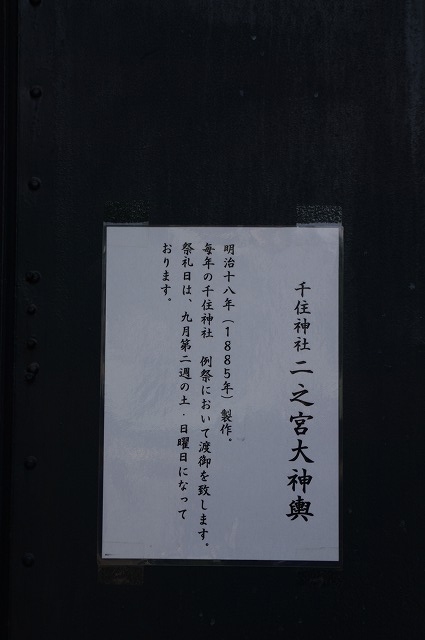 千住神社二之宮大神輿
明治十八年（1885年）製作。
毎年の千住神社　例祭において渡御を致します。
祭礼日は、九月第二週の土・日曜日になって
おります。